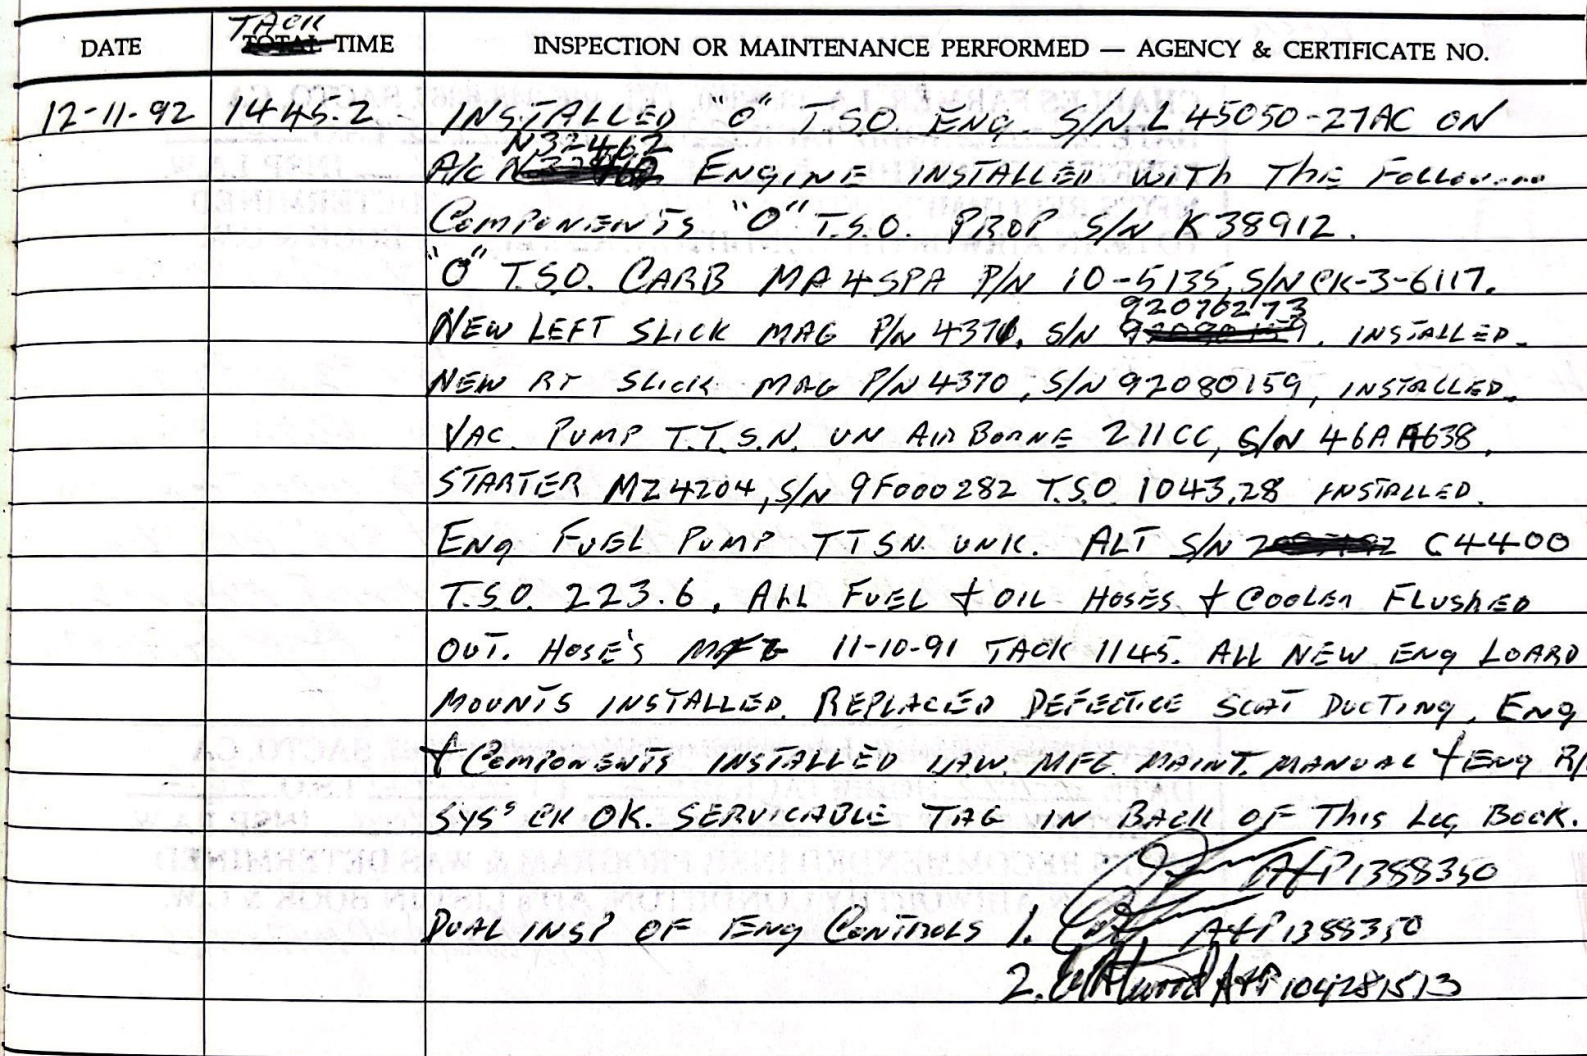 DATE TACK TIME INSPECTION OR MAINTENANCE PERFORMED — AGENCY & CERTIFICATE NO.
12-11-92 1445.2 INSTALLED "O" T.S.O. ENG. S/N L 45050-27AC ON
A/C N32462 ENGINE INSTALLED WITH THE FOLLOWING
COMPONENTS "O" T.S.O. PROP S/N K38912.
"O" T.S.O. CARB MA4SPA P/N 10-5135, S/N CK-3-6117.
NEW LEFT SLICK MAG P/N 4371, S/N 92076273. INSTALLED.
NEW RT SLICK MAG P/N 4370, S/N 92080159, INSTALLED.
VAC. PUMP T.T.S.N. UN AIRBORNE 211CC, S/N 46AA638,
STARTER MZ4204, S/N 9F000282 T.S.O. 1043.28 INSTALLED.
ENG FUEL PUMP TTSN UNK. ALT S/N C4400
T.S.O. 223.6, ALL FUEL + OIL HOSES + COOLER FLUSHED
OUT. HOSE'S MFG 11-10-91 TACK 1145. ALL NEW ENG LOARD
MOUNTS INSTALLED. REPLACED DEFECTIVE SCAT DUCTING, ENG
+ COMPONENTS INSTALLED I.A.W. MFG. MAINT. MANUAL + ENG R/
SYS' CK OK. SERVICABLE TAG IN BACK OF THIS LOG BOOK.
A+P 1388350
DUAL INSP OF ENG CONTROLS 1. A+P 1388350
2. A+P 104281513